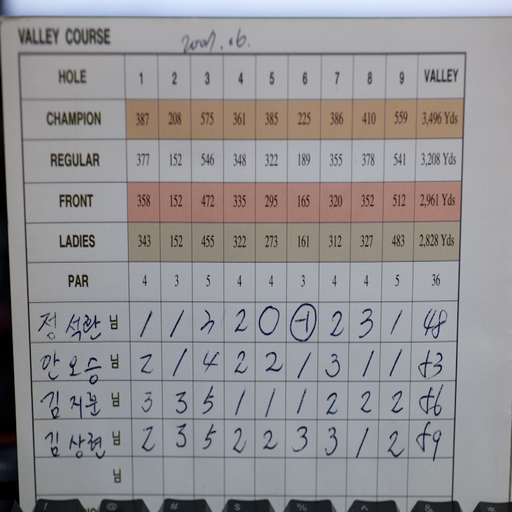 VALLEY COURSE 2007. 06.
HOLE 1 2 3 4 5 6 7 8 9 VALLEY
CHAMPION 387 208 575 361 385 225 386 410 559 3,496 Yds
REGULAR 377 152 546 348 322 189 355 378 541 3,208 Yds
FRONT 358 152 472 335 295 165 320 352 512 2,961 Yds
LADIES 343 152 455 322 273 161 312 327 483 2,828 Yds
PAR 4 3 5 4 4 3 4 4 5 36
정석관 님 1 1 3 2 0 -1 2 3 1 48
안오승 님 2 1 4 2 2 1 3 1 1 53
김지분 님 3 3 5 1 1 1 2 2 2 56
김상현 님 2 3 5 2 2 3 3 1 2 59
님
! @ # $ % ^ &